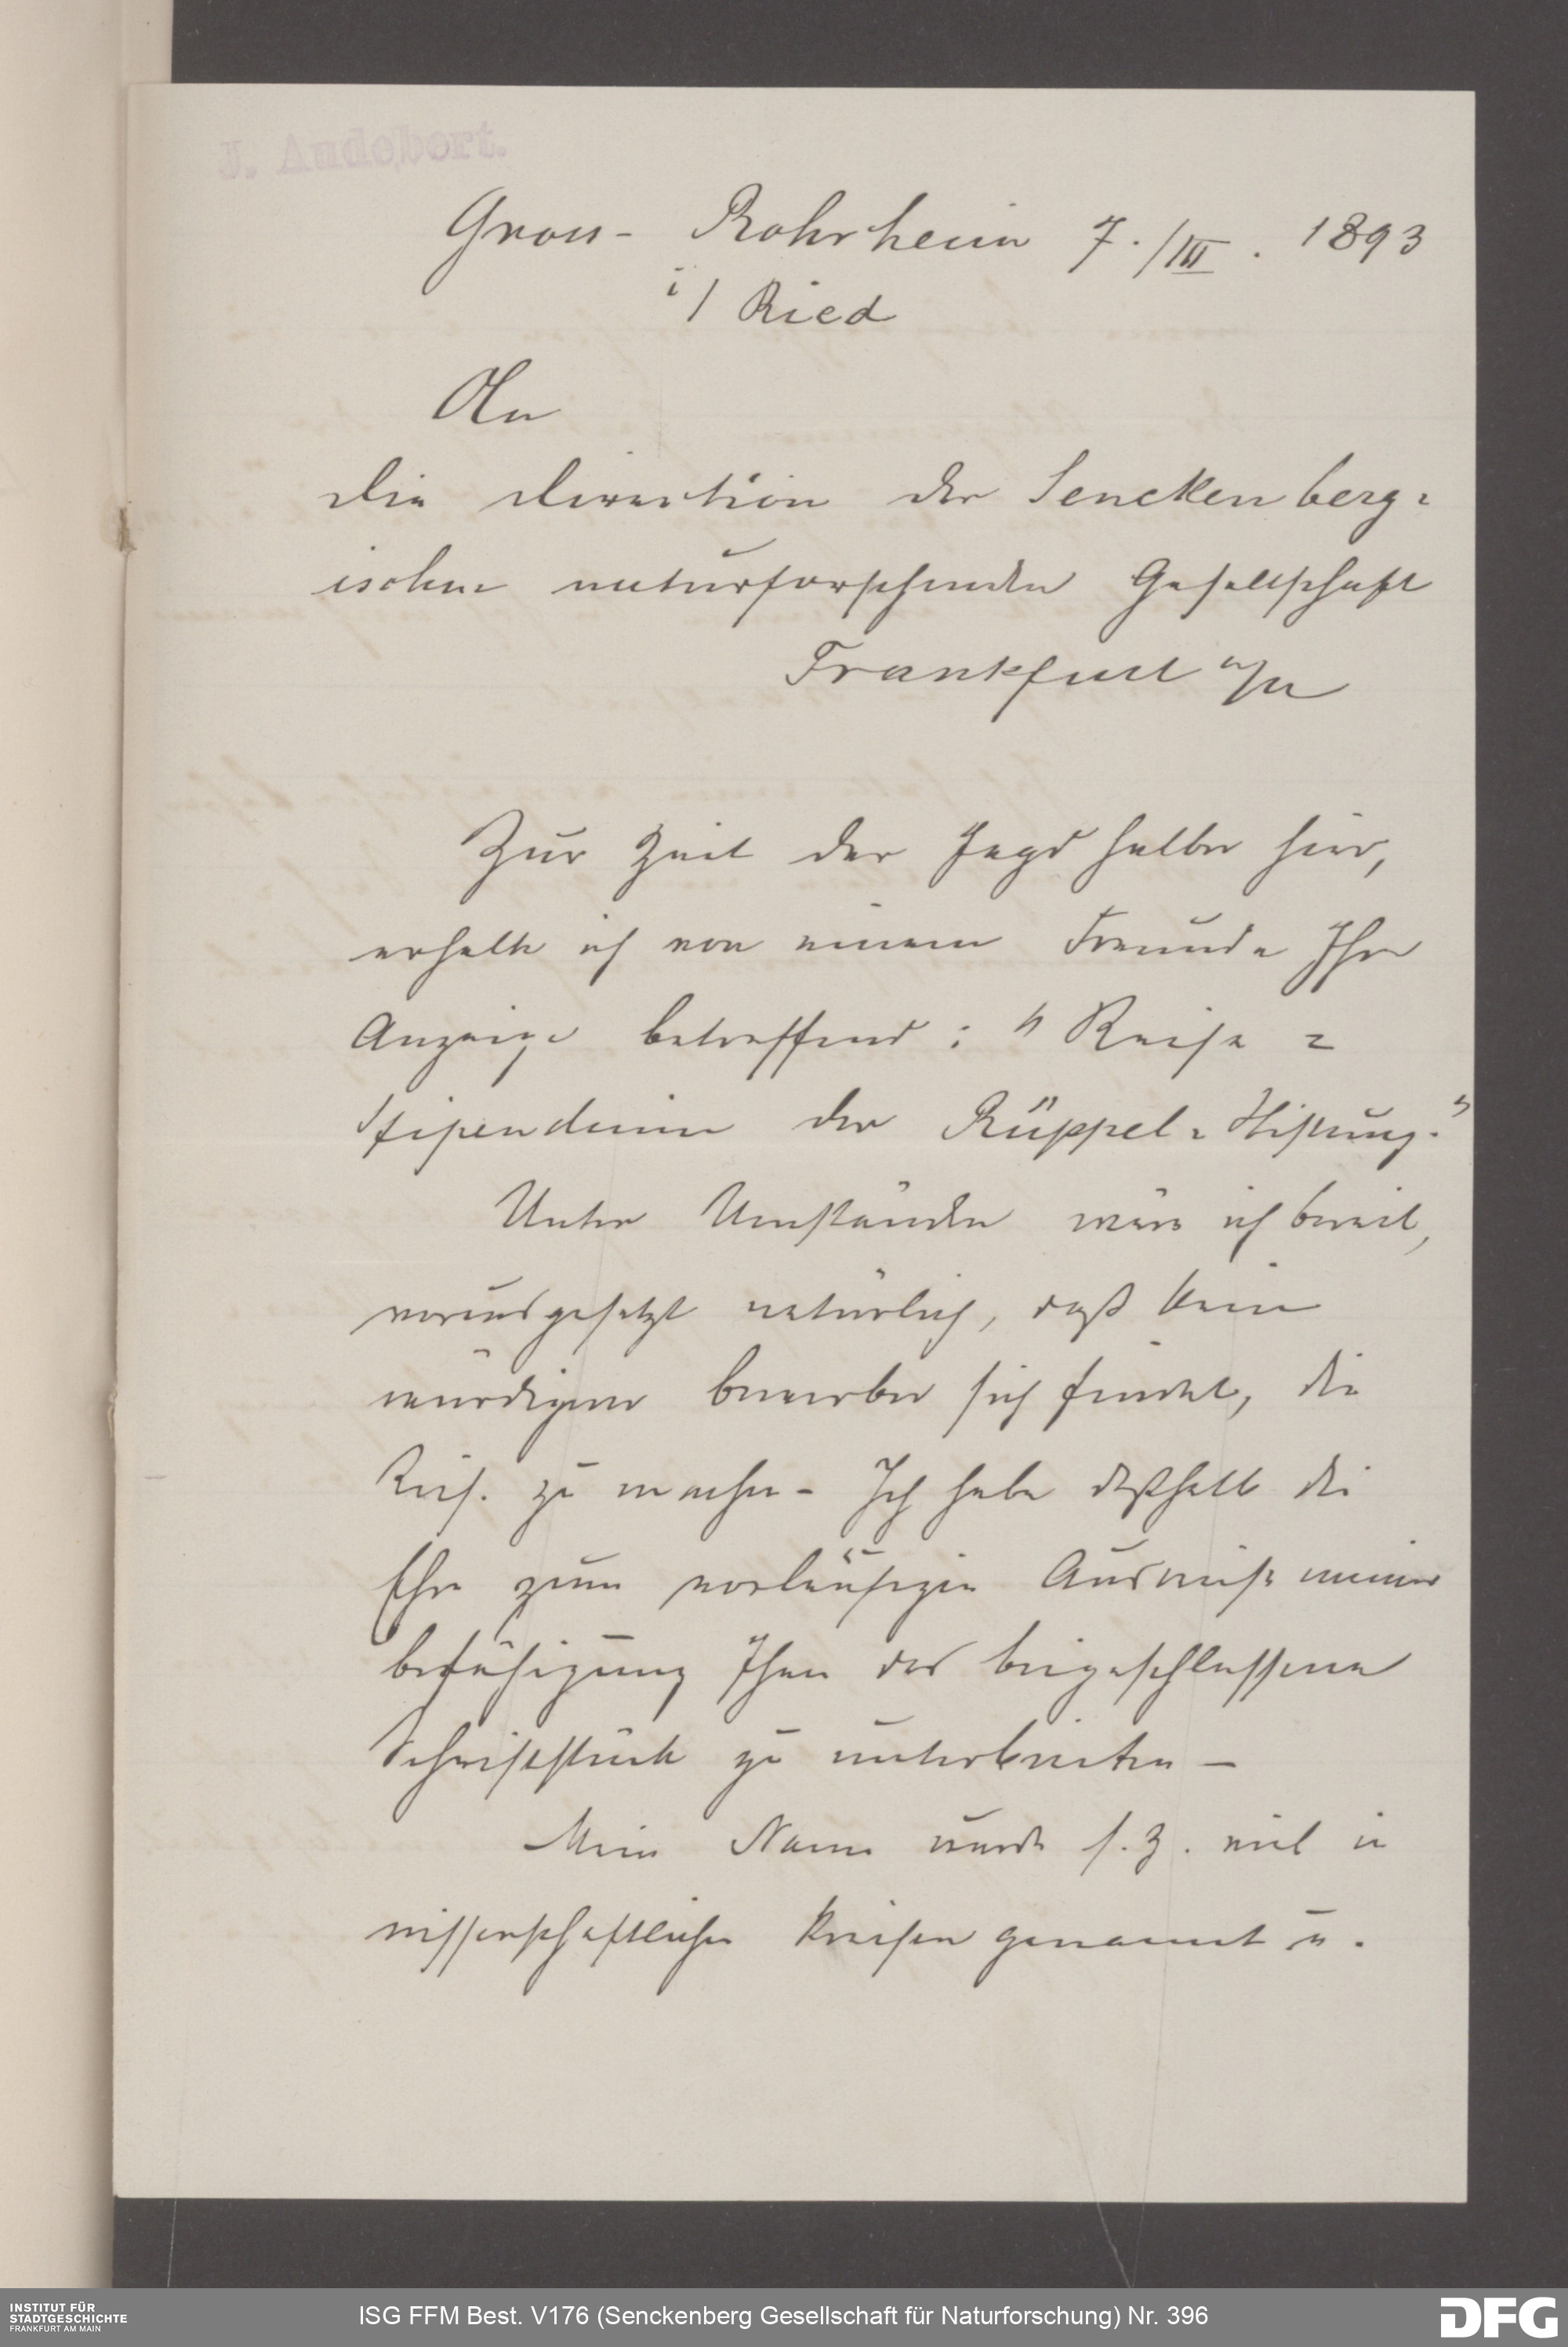 J. Audebert.
Gross- Rohrheim 7./III. 1893
i/ Ried
An
die Direction der Senckenberg-
ischen naturforschenden Gesellschaft
Frankfurt a/M
Zur Zeit der Jagd halber hier,
erhalte ich von einem Freunde Ihre
Anzeige betreffend: "Reise-
stipendium der Rüppel-Stiftung."
Unter Umständen wäre ich bereit,
vorausgesetzt natürlich, daß kein
würdigerer Bewerber sich findet, die
Reise zu machen - Ich habe deßhalb die
Ehre zum vorläufigen Ausweiß meiner
Befähigung Ihnen das beigeschlossene
Schriftstück zu unterbreiten -
Mein Name wurde s. Z. viel in
wissenschaftlichen Kreisen genannt u.
INSTITUT FÜR
STADTGESCHICHTE
FRANKFURT AM MAIN
ISG FFM Best. V176 (Senckenberg Gesellschaft für Naturforschung) Nr. 396
DFG